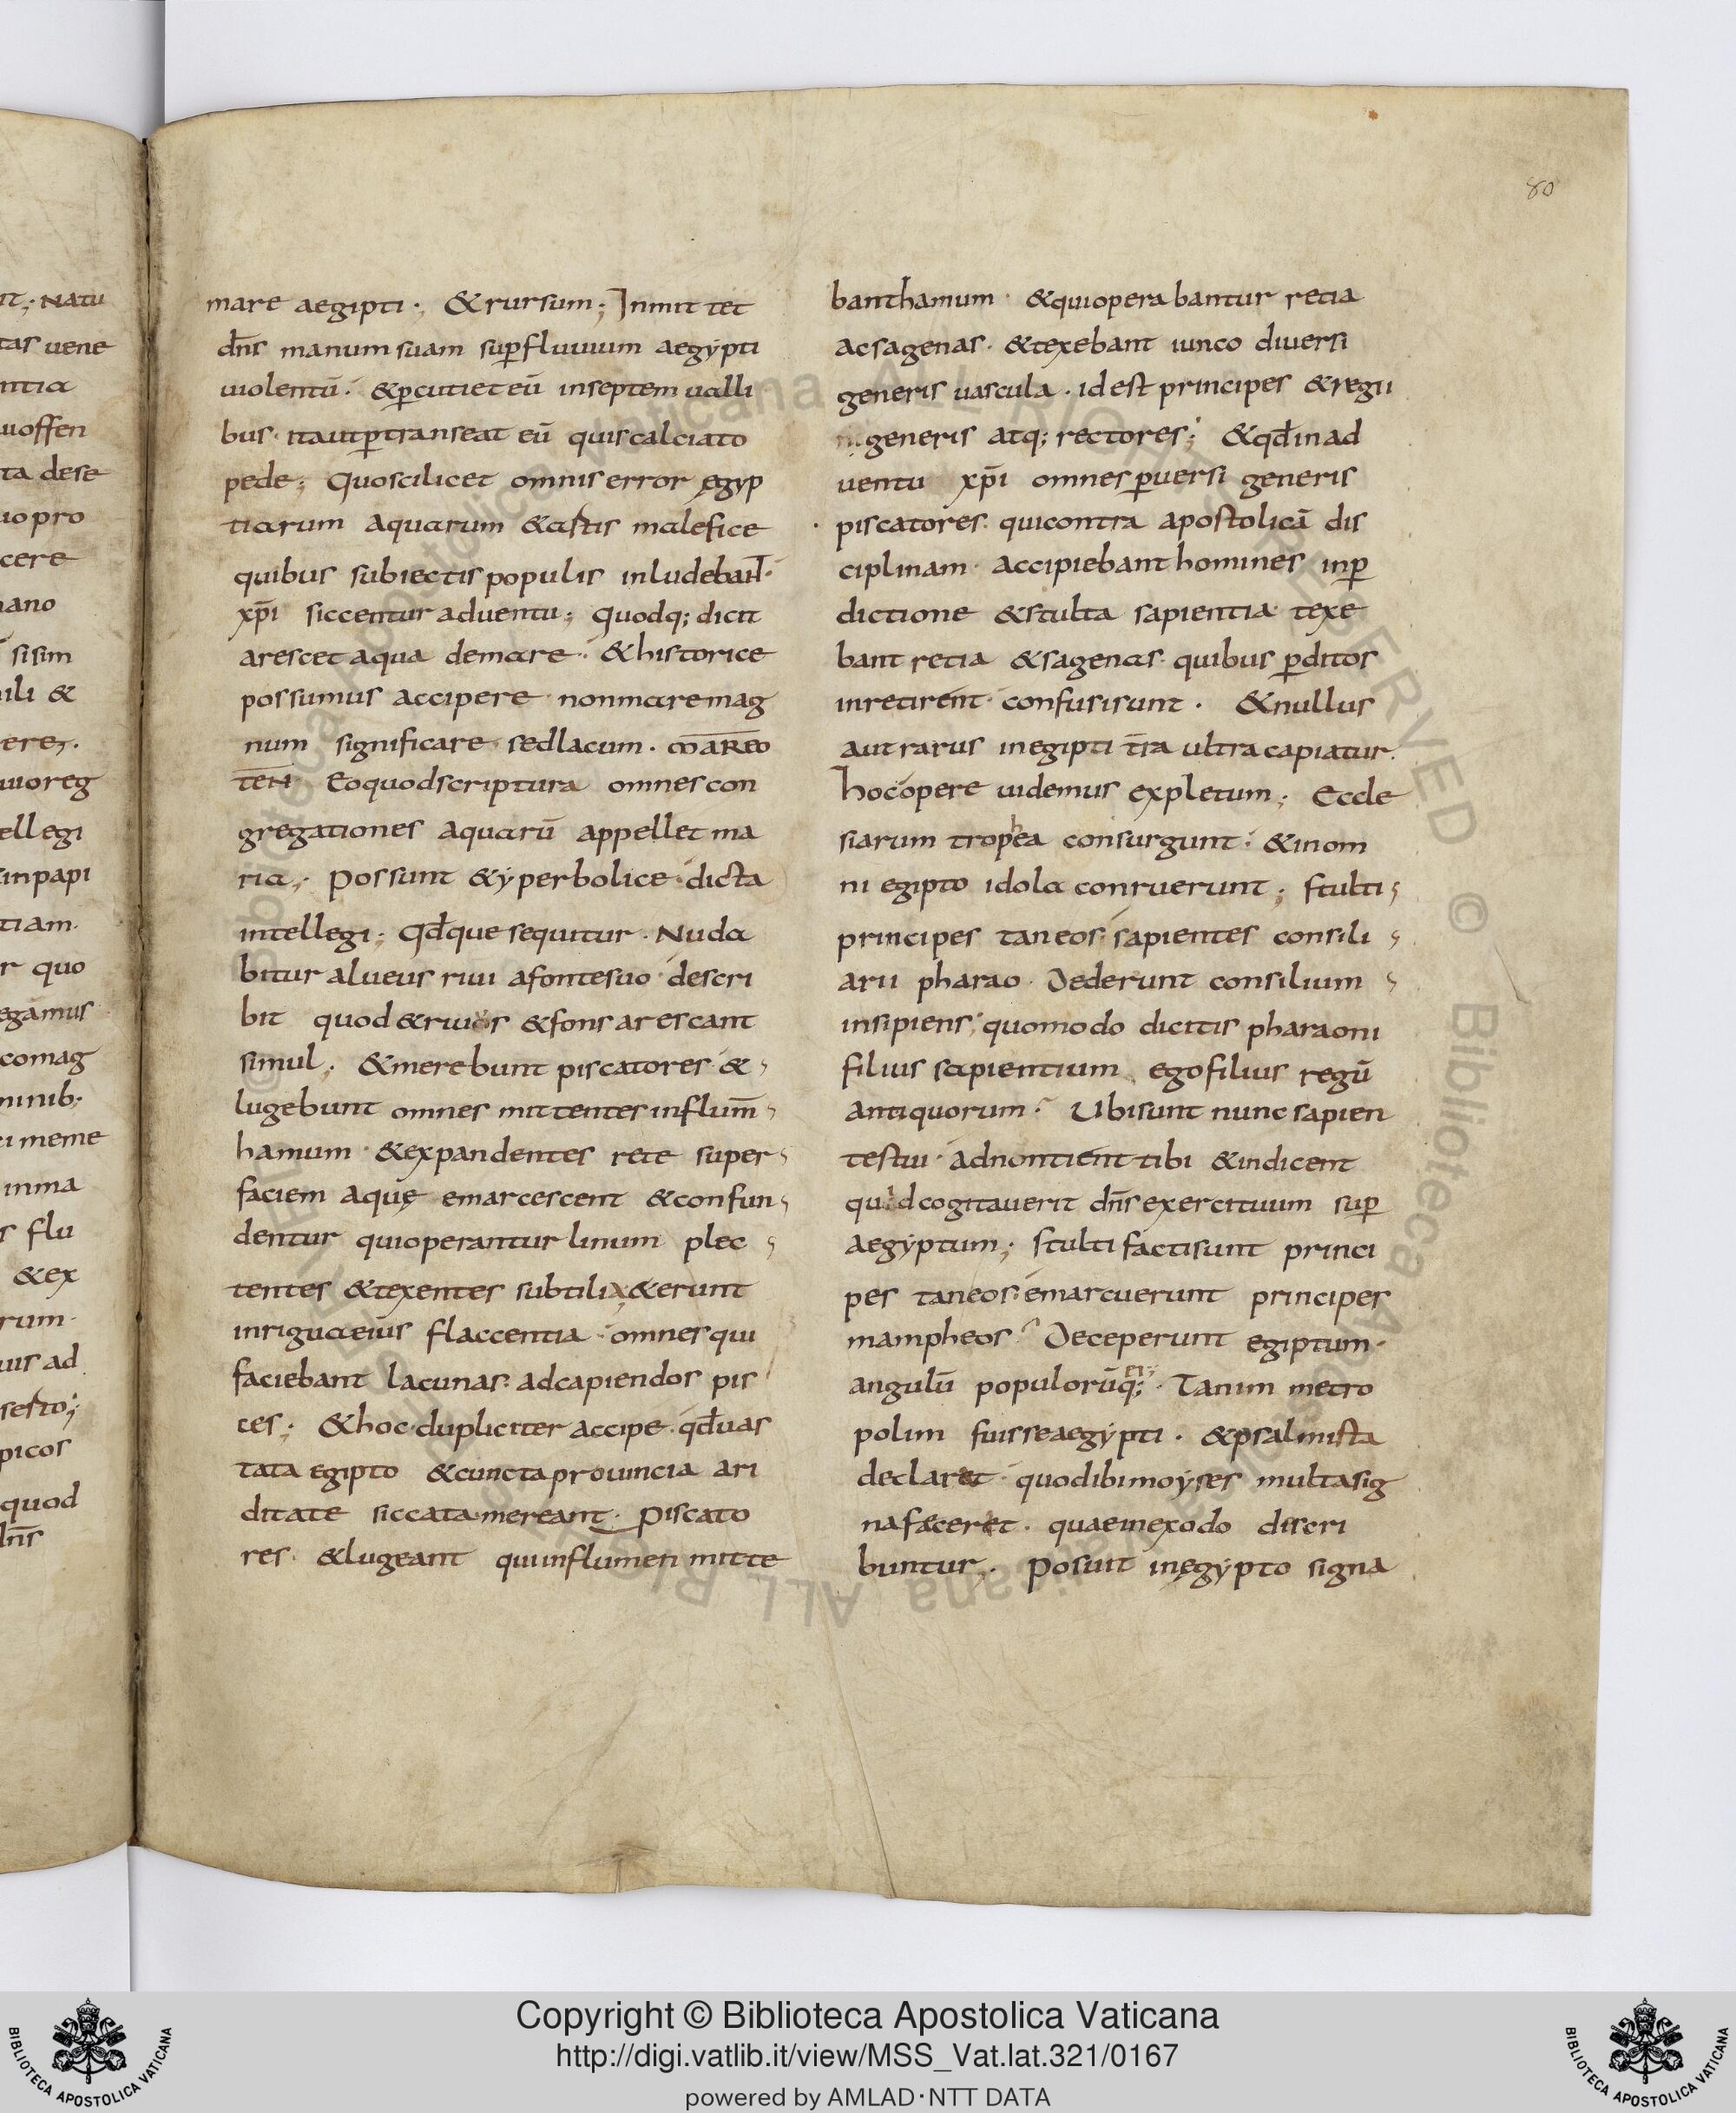 it; natu
tas uene
ntia
uoffen
ta dese
uo pro
cere
ano
sisim
ili &
ere;.
uioreg
ellegi
inpapi
tiam.
r quo
egamus
comag
minib;
meme
inma
s flu
&ex
rum.
uis ad
sesto;
picos
quod
dn̄s
80
mare aegipti·, &rursum; Inmittet
dn̄s manum suam sup̄ fluuium aegẏpti
uiolentū· &p̄cutiet eū inseptem ualli
bus· itautp̄transeat eū quis calciato
pede; Quo scilicet omnis error ęgyp
tiarum aquarum &astis malefice
quibus subiectis populis inludebant·
xp̄i siccentur aduentu; Quodq; dicit
arescet aqua demare· &historice
possumus accipere· nonmaremag
num significare· sedlacum· MAREO
TEN Eoquodscriptura omnescon
gregationes aquarū appellet ma
ria;· Possunt &ẏperbolice· dicta
intellegi; Qd̄que sequitur· Nuda
bitur alueus riui afontesuo· descri
bit quod&riuos &fons arescant
simul;· &merebunt piscatores·&
lugebunt omnes mittentes influm̄
hamum· &expandentes rete super
faciem aquę emarcescent &confun
dentur quioperantur linum plec
tentes &texentes subtilia; &erunt
inrigua eius flaccentia· omnes qui
faciebant lacunas· adcapiendos pis
ces; &hoc·dupliciter accipe· qd̄uas
tata egipto &cuncta prouincia ari
ditate siccata·mereant· Piscato
res· &lugeant quiinflumen mitte
banthamum· &quioperabantur retia
acsagenas· &texebant iunco diuersi
generis uascula· idest principes &regii
generis atq; rectores; &qd̄ inad
uentu xp̄i omnes p̄uersi generis
piscatores· quicontra apostolicā dis
ciplinam· accipiebant homines inp̄
dictione &stulta sapientia· texe
bant retia &sagenas· quibus p̄ditos
inretirent· confusi sunt· &nullus
aut rarus inegipti tr̄a ultra capiatur.
hocopere uidemus expletum; Eccle
siarum tropea h consurgunt· &inom
ni egipto idola conruerunt; Stulti
principes taneos· sapientes consili
arii pharao· Dederunt consilium
insipiens; quomodo dicitis pharaoni
filius sapientium ego filius regū
antiquorum? Ubisunt nunc sapien
testui· adnontient tibi &indicent
quid cogitauerit dn̄s exercituum sup̄
aegẏptum; Stulti factisunt princi
pes taneos· emarcuerunt principes
mampheos? Deceperunt egiptum·
angulū populorūq; ei· Tanim metro
polim fuisse aegẏpti· &psalmista
declaret· quodibimoẏses multasig
nafaceret· quaeinexodo discri
buntur;· Posuit inęgẏpto signa
Copyright © Biblioteca Apostolica Vaticana
http://digi.vatlib.it/view/MSS_Vat.lat.321/0167
powered by AMLAD·NTT DATA
BIBLIOTECA APOSTOLICA VATICANA
BIBLIOTECA APOSTOLICA VATICANA